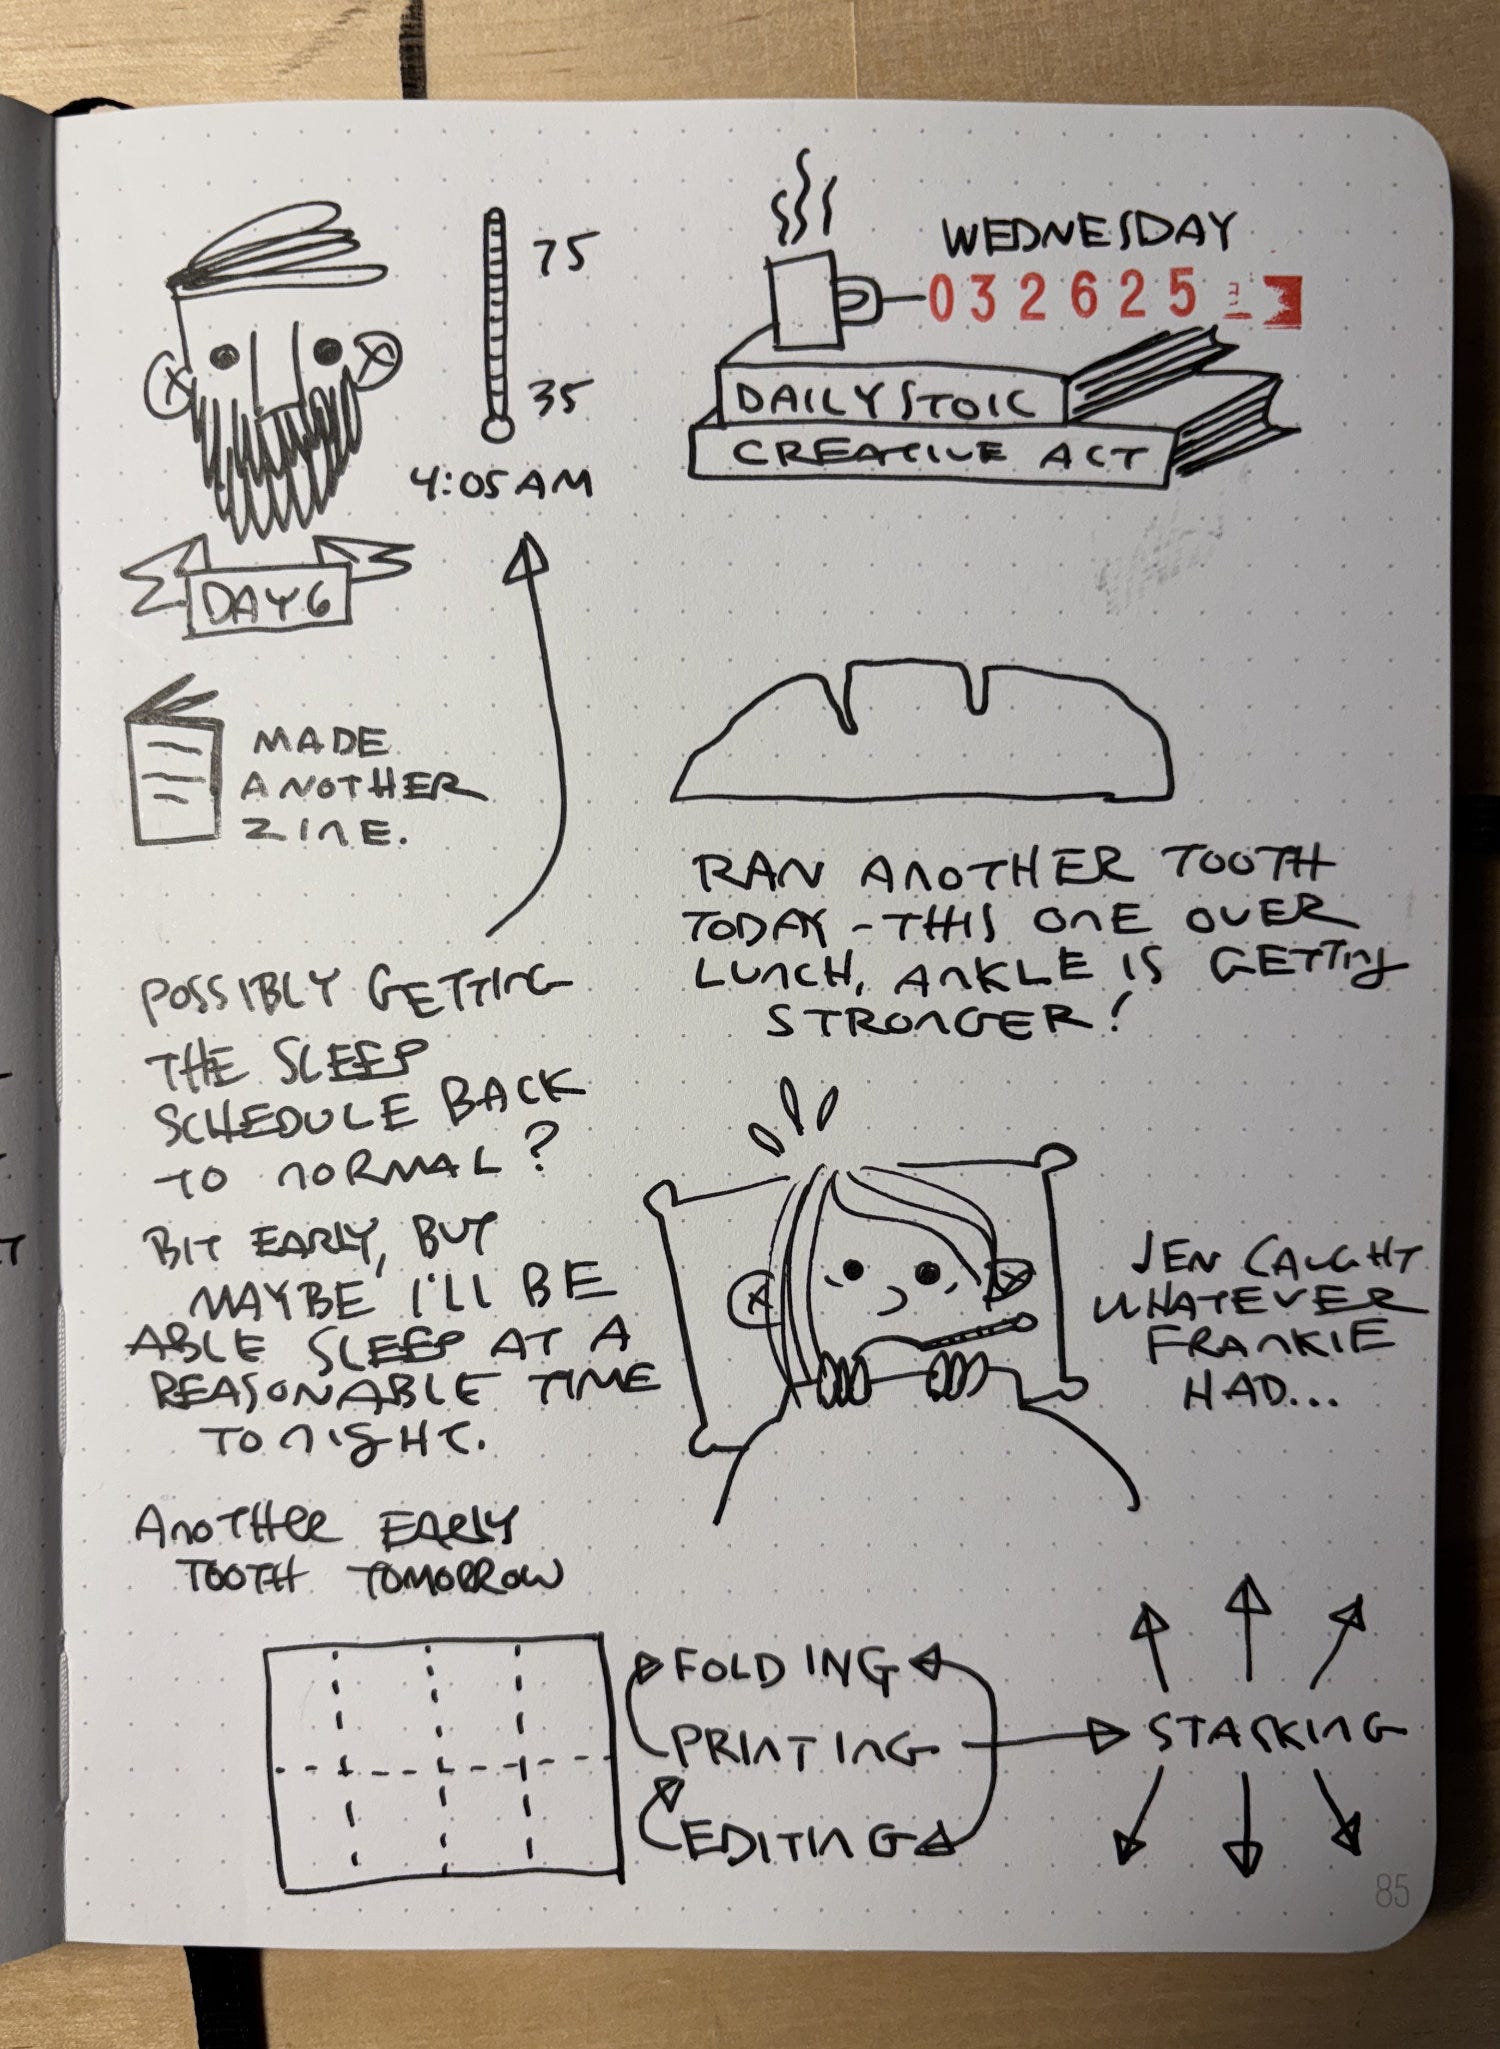 75
35
4:05AM
WEDNESDAY
032625
DAILY STOIC
CREATIVE ACT
DAY 6
MADE
ANOTHER
ZINE.
POSSIBLY GETTING
THE SLEEP
SCHEDULE BACK
TO NORMAL?
BIT EARLY, BUT
MAYBE I'LL BE
ABLE SLEEP AT A
REASONABLE TIME
TONIGHT.
ANOTHER EARLY
TOOTH TOMORROW
RAN ANOTHER TOOTH
TODAY - THIS ONE OVER
LUNCH, ANKLE IS GETTING
STRONGER!
JEN CAUGHT
WHATEVER
FRANKIE
HAD...
FOLDING
PRINTING
EDITING
STASKING
85